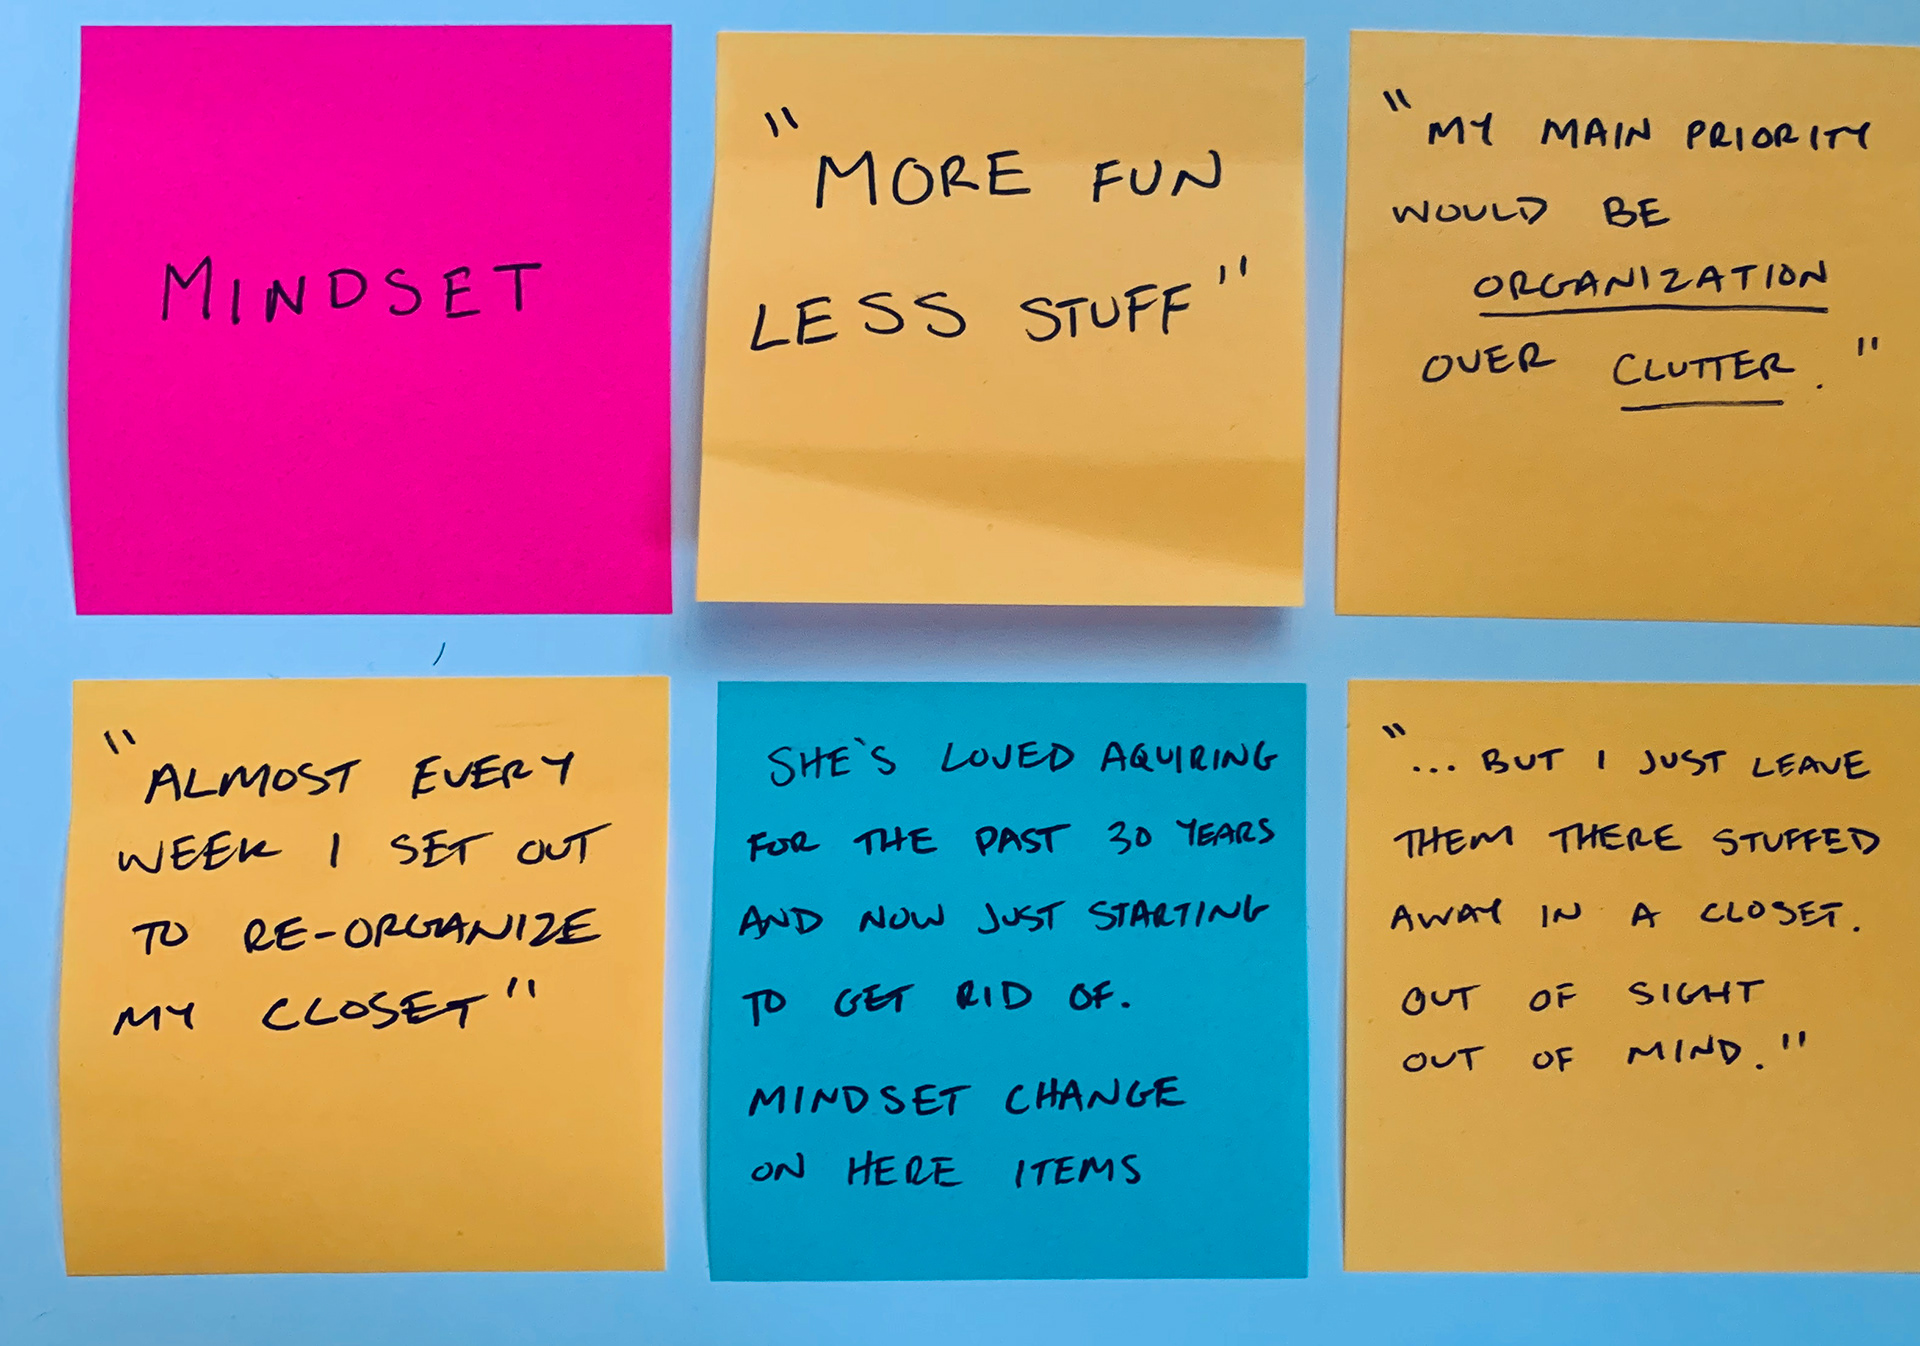 MINDSET
"MORE FUN
LESS STUFF"
"MY MAIN PRIORITY
WOULD BE
ORGANIZATION
OVER CLUTTER."
"ALMOST EVERY
WEEK I SET OUT
TO RE-ORGANIZE
MY CLOSET"
SHE'S LOVED AQUIRING
FOR THE PAST 30 YEARS
AND NOW JUST STARTING
TO GET RID OF.
MINDSET CHANGE
ON HERE ITEMS
"... BUT I JUST LEAVE
THEM THERE STUFFED
AWAY IN A CLOSET.
OUT OF SIGHT
OUT OF MIND."